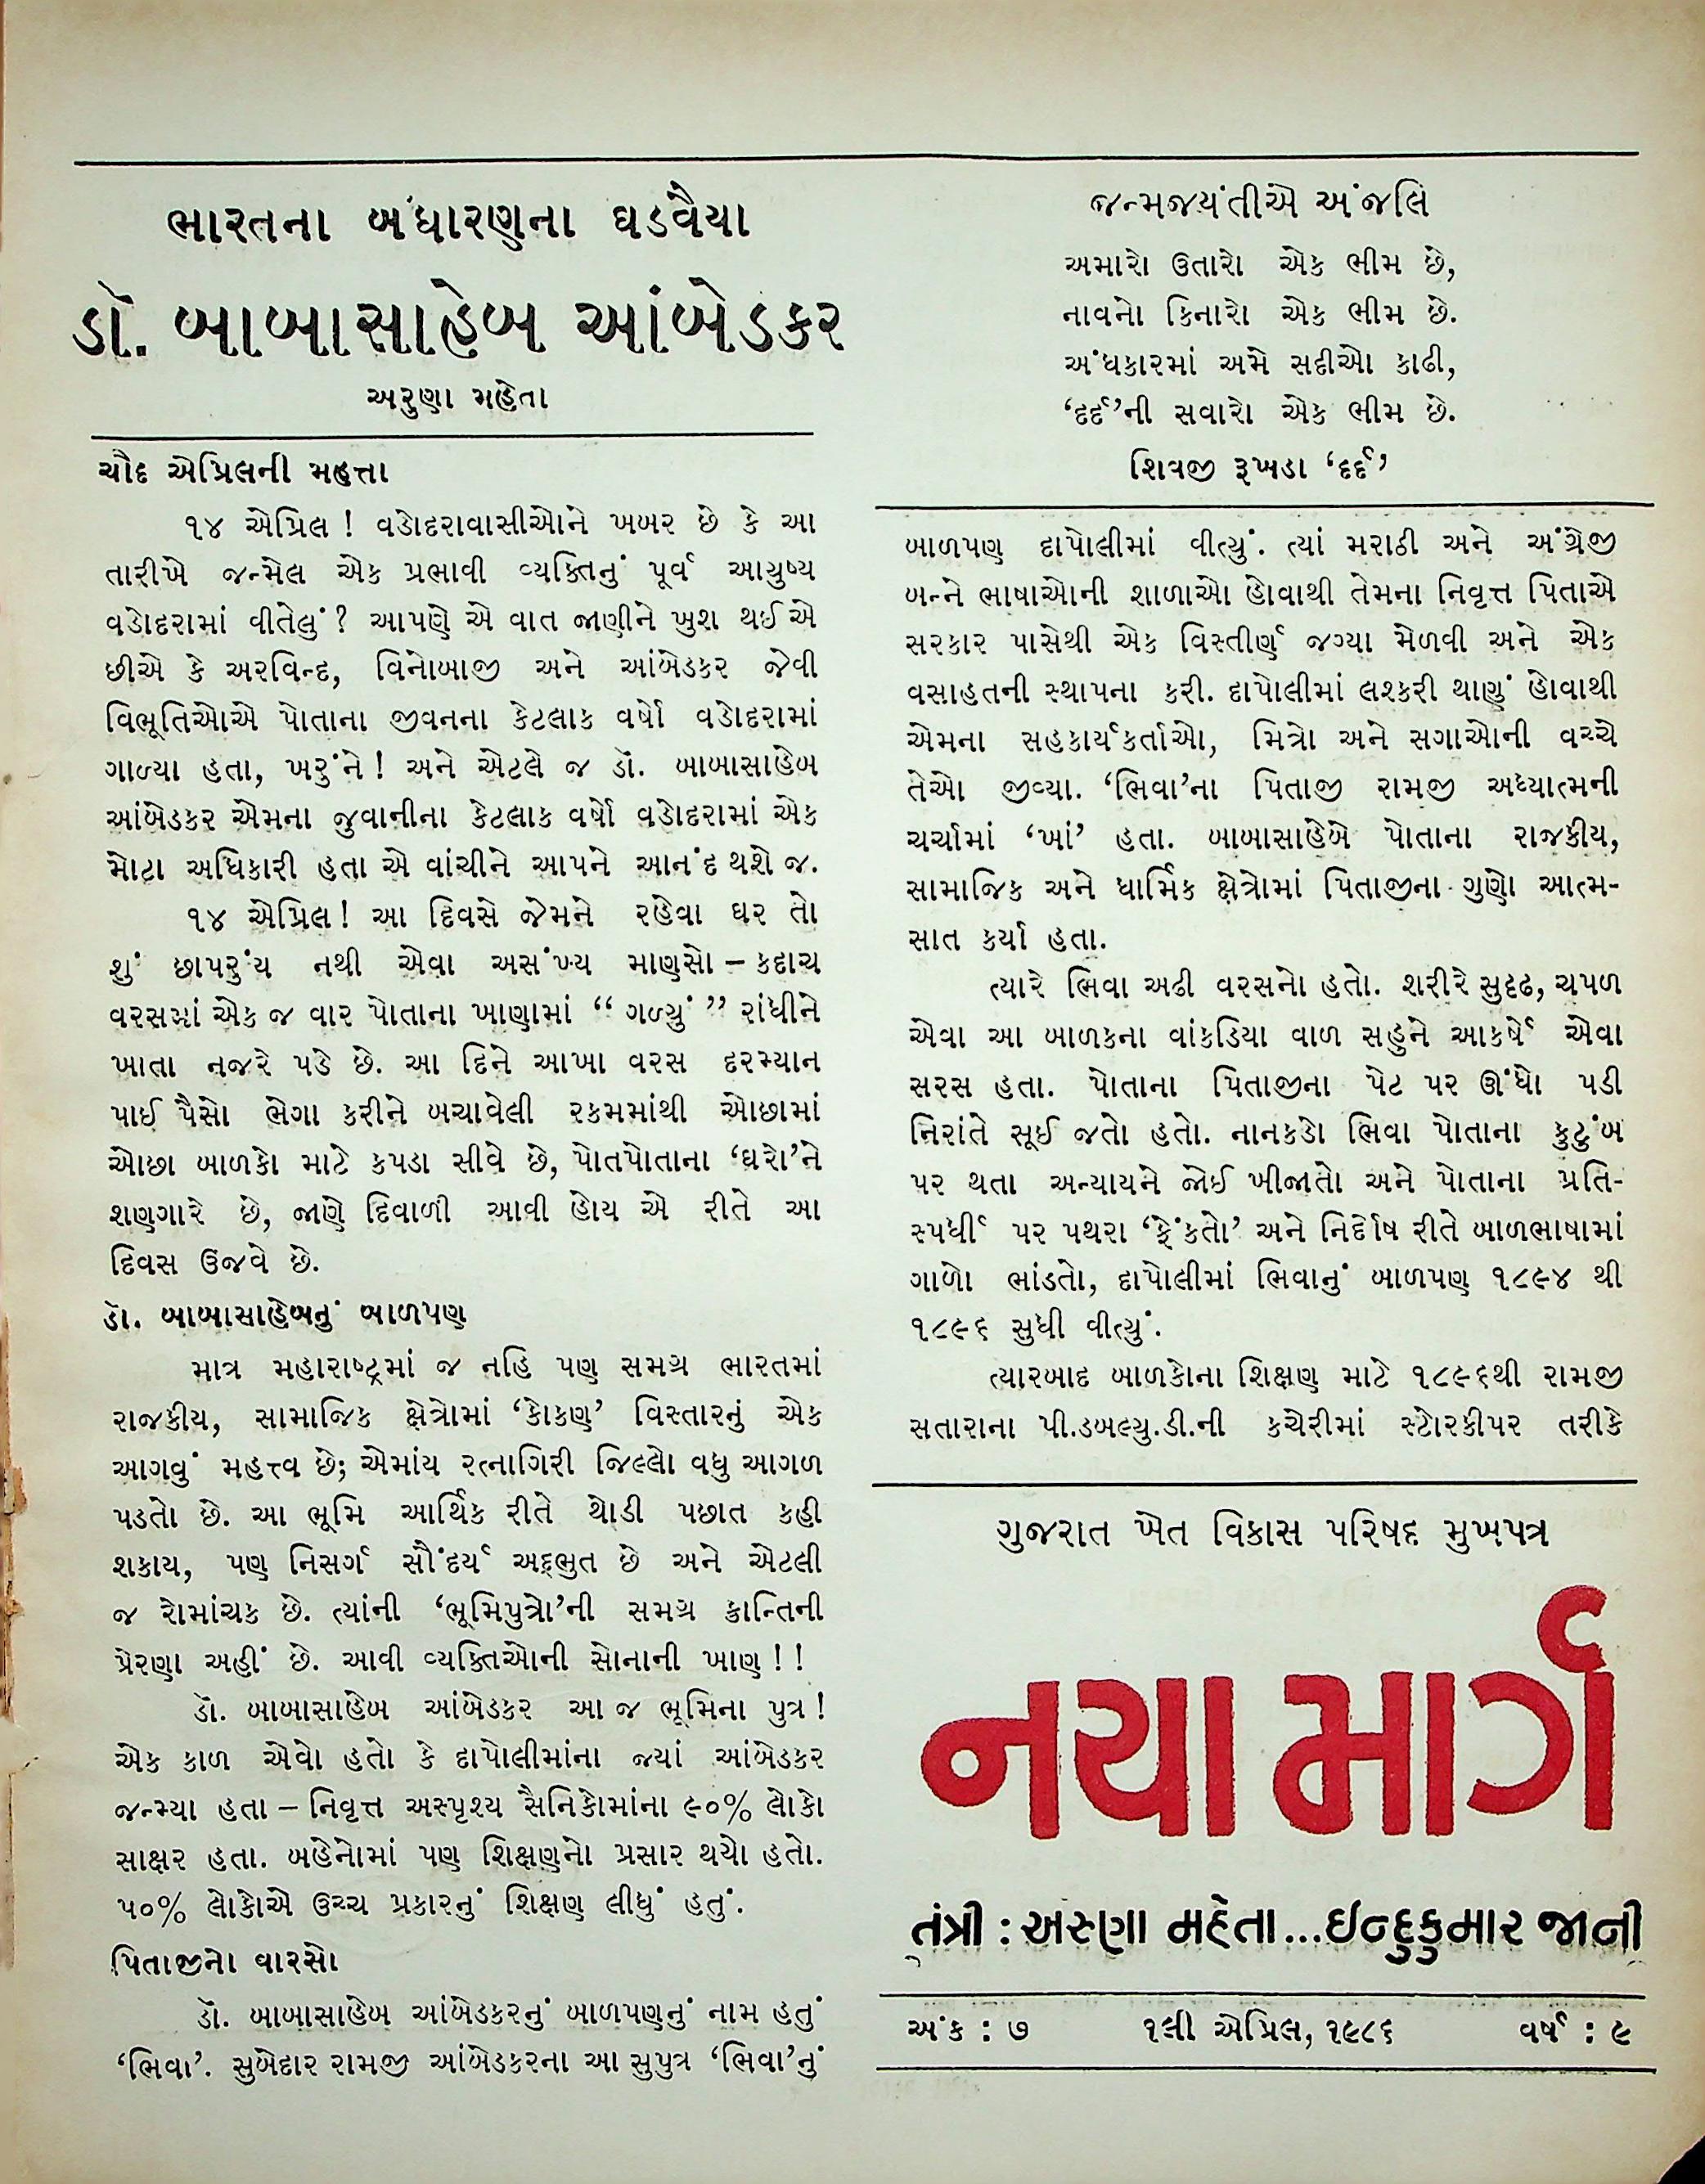 ભારતના બંધારણના ઘડવૈયા
ડૉ. બાબાસાહેબ આંબેડકર
અરુણા મહેતા
ચૌદ એપ્રિલની મહત્તા
૧૪ એપ્રિલ ! વડોદરાવાસીઓને ખબર છે કે આ
તારીખે જન્મેલ એક પ્રભાવી વ્યક્તિનું પૂર્વ આયુષ્ય
વડોદરામાં વીતેલું? આપણે એ વાત જાણીને ખુશ થઈએ
છીએ કે અરવિન્દ, વિનોબાજી અને આંબેડકર જેવી
વિભૂતિઓએ પોતાના જીવનના કેટલાક વર્ષો વડોદરામાં
ગાળ્યા હતા, ખરુંને! અને એટલે જ ડૉ. બાબાસાહેબ
આંબેડકર એમના જુવાનીના કેટલાક વર્ષો વડોદરામાં એક
મોટા અધિકારી હતા એ વાંચીને આપને આનંદ થશે જ.
૧૪ એપ્રિલ! આ દિવસે જેમને રહેવા ઘર તો
શું છાપરુંય નથી એવા અસંખ્ય માણસો – કદાચ
વરસમાં એક જ વાર પોતાના ખાણામાં “ ગળ્યું ” રાંધીને
ખાતા નજરે પડે છે. આ દિને આખા વરસ દરમ્યાન
પાઈ પૈસો ભેગા કરીને બચાવેલી રકમમાંથી ઓછામાં
ઓછા બાળકો માટે કપડા સીવે છે, પોતપોતાના ‘ઘરો’ને
શણગારે છે, જાણે દિવાળી આવી હોય એ રીતે આ
દિવસ ઉજવે છે.
ડૉ. બાબાસાહેબનું બાળપણ
માત્ર મહારાષ્ટ્રમાં જ નહિ પણ સમગ્ર ભારતમાં
રાજકીય, સામાજિક ક્ષેત્રોમાં ‘કોકણ’ વિસ્તારનું એક
આગવું મહત્ત્વ છે; એમાંય રત્નાગિરી જિલ્લો વધુ આગળ
પડતો છે. આ ભૂમિ આર્થિક રીતે થોડી પછાત કહી
શકાય, પણ નિસર્ગ સૌંદર્ય અદ્ભુત છે અને એટલી
જ રોમાંચક છે. ત્યાંની ‘ભૂમિપુત્રો’ની સમગ્ર ક્રાન્તિની
પ્રેરણા અહીં છે. આવી વ્યક્તિઓની સોનાની ખાણ ! !
ડૉ. બાબાસાહેબ આંબેડકર આ જ ભૂમિના પુત્ર !
એક કાળ એવો હતો કે દાપોલીમાંના જ્યાં આંબેડકર
જન્મ્યા હતા – નિવૃત્ત અસ્પૃશ્ય સૈનિકોમાંના ૯૦% લોકો
સાક્ષર હતા. બહેનોમાં પણ શિક્ષણનો પ્રસાર થયો હતો.
૫૦% લોકોએ ઉચ્ચ પ્રકારનું શિક્ષણ લીધું હતું.
પિતાજીનો વારસો
ડૉ. બાબાસાહેબ આંબેડકરનું બાળપણનું નામ હતું
‘ભિવા’. સુબેદાર રામજી આંબેડકરના આ સુપુત્ર ‘ભિવા’નું
જન્મજયંતીએ અંજલિ
અમારો ઉતારો એક ભીમ છે,
નાવનો કિનારો એક ભીમ છે.
અંધકારમાં અમે સદીઓ કાઢી,
‘દર્દ’ની સવારો એક ભીમ છે.
શિવજી રૂખડા ‘દર્દ’
બાળપણ દાપોલીમાં વીત્યું. ત્યાં મરાઠી અને અંગ્રેજી
બન્ને ભાષાઓની શાળાઓ હોવાથી તેમના નિવૃત્ત પિતાએ
સરકાર પાસેથી એક વિસ્તીર્ણ જગ્યા મેળવી અને એક
વસાહતની સ્થાપના કરી. દાપોલીમાં લશ્કરી થાણું હોવાથી
એમના સહકાર્યકર્તાઓ, મિત્રો અને સગાઓની વચ્ચે
તેઓ જીવ્યા. ‘ભિવા’ના પિતાજી રામજી અધ્યાત્મની
ચર્ચામાં ‘ખાં’ હતા. બાબાસાહેબે પોતાના રાજકીય,
સામાજિક અને ધાર્મિક ક્ષેત્રોમાં પિતાજીના ગુણો આત્મ-
સાત કર્યા હતા.
ત્યારે ભિવા અઢી વરસનો હતો. શરીરે સુદૃઢ, ચપળ
એવા આ બાળકના વાંકડિયા વાળ સહુને આકર્ષે એવા
સરસ હતા. પોતાના પિતાજીના પેટ પર ઊંધો પડી
નિરાંતે સૂઈ જતો હતો. નાનકડો ભિવા પોતાના કુટુંબ
પર થતા અન્યાયને જોઈ ખીજાતો અને પોતાના પ્રતિ-
સ્પર્ધી પર પથરા ‘ફેંકતો’ અને નિર્દોષ રીતે બાળભાષામાં
ગાળો ભાંડતો, દાપોલીમાં ભિવાનું બાળપણ ૧૮૯૪ થી
૧૮૯૬ સુધી વીત્યું.
ત્યારબાદ બાળકોના શિક્ષણ માટે ૧૮૯૬થી રામજી
સતારાના પી.ડબલ્યુ.ડી.ની કચેરીમાં સ્ટોરકીપર તરીકે
ગુજરાત ખેત વિકાસ પરિષદ મુખપત્ર
નયા માર્ગ
તંત્રી : અરુણા મહેતા...ઈન્દુકુમાર જાની
અંક : ૭ ૧લી એપ્રિલ, ૧૯૮૬ વર્ષ : ૯